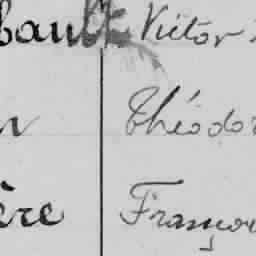 bault Victor
n Théodor
ère Françoi